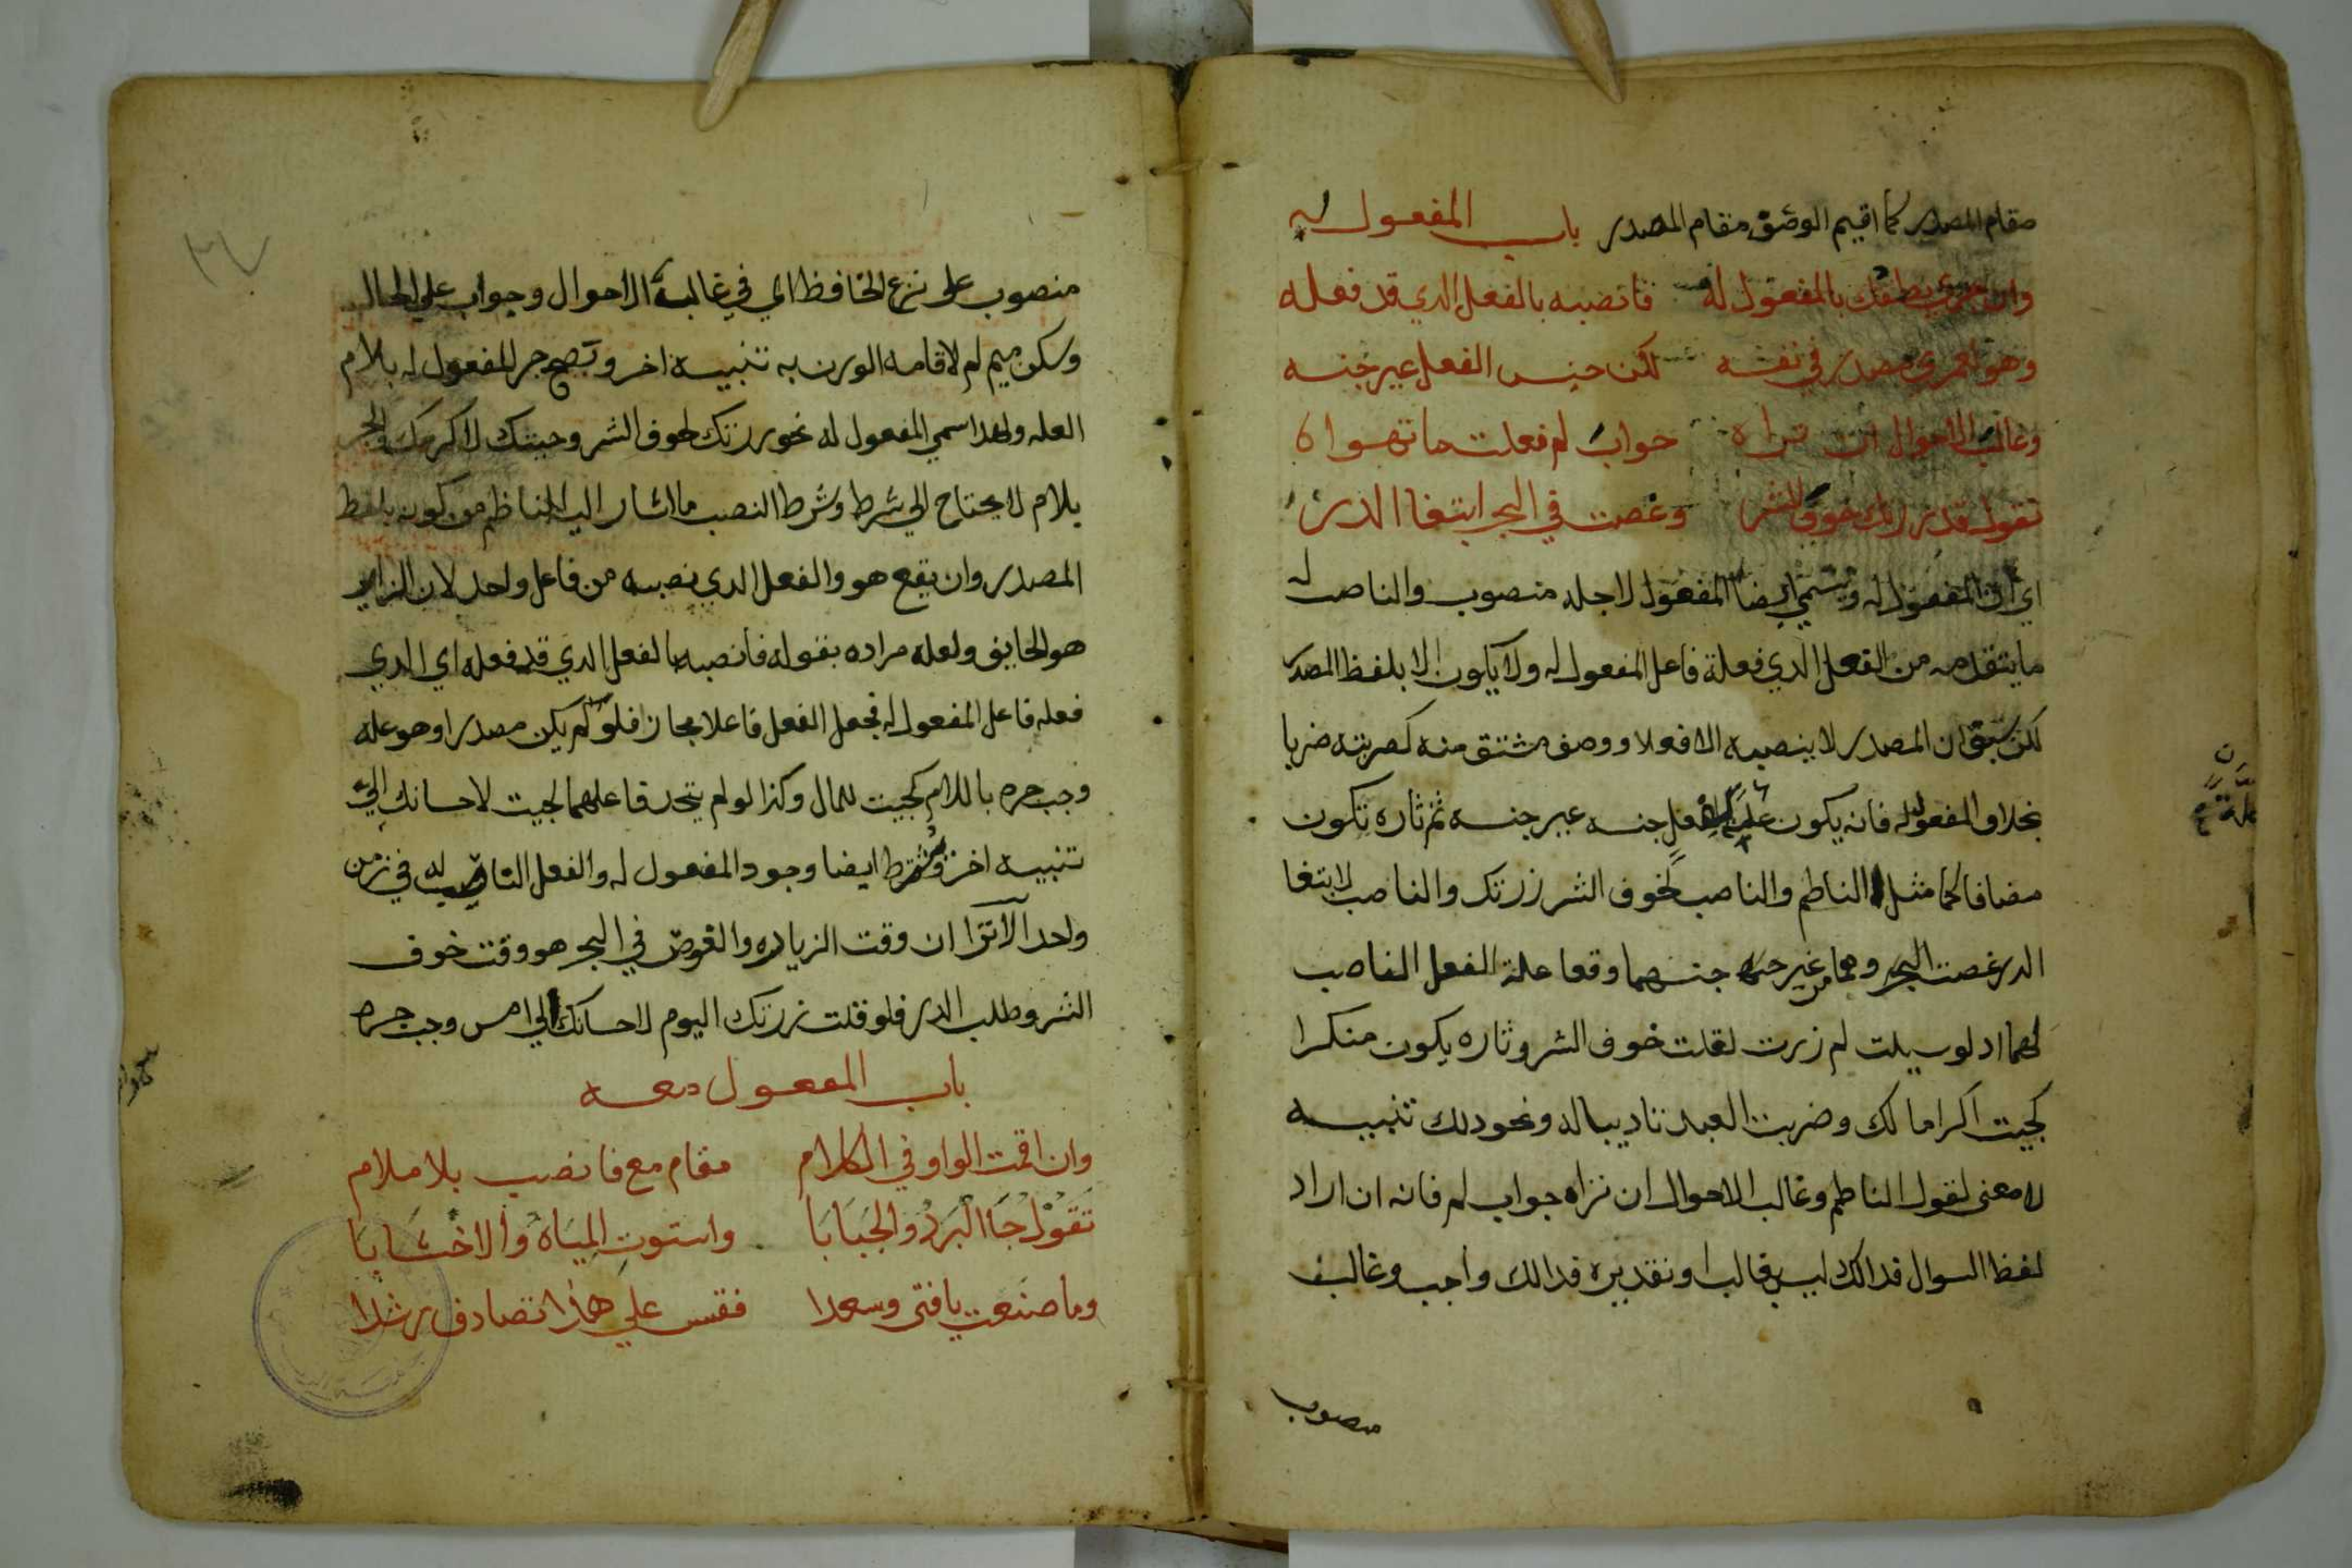 مقام المصدر كما اقيم الوصف مقام المصدر باب المفعول له
وان جري نطقك بالمفعول له فانصبه بالفعل الدي قد فعله
وهو لعمري مصدر في نفسه لكن جنس الفعل غير جنسه
وغالب الاحوال ان تراه جواب لم فعلت ما تهواه
تقول قد زرتك خوف الشر وغصت في البحر ابتغا الدر
اي ان المفعول له ويسمي ايضا المفعول لاجله منصوب والناصب له
ما يتقدمه من الفعل الدي فعله فاعل المفعول له ولا يكون الا بلفظ المصدر
لكن سبق ان المصدر لا ينصبه الا فعلا ووصف مشتق منه كضربته ضربا
بخلاف المفعول له فانه يكون علة لفعل جنسه غير جنسه ثم تاره تكون
مضافا كما مثل الناظم والناصب لخوف الشر زرتك والناصب لابتغا
الدر غصت البحر وهما من غير جنسهما وقعا علة الفعل الناصب
لهما اد لو سيلت لم زرت لقلت خوف الشر وتاره يكون منكرا
كجيت اكراما لك وضربت العبد تاديبا له ونحو دلك تنبيه
لا معنى لقول الناظم وغالب الاحوال ان تراه جواب لم فانه ان اراد
لفظ السوال فدالك ليس غالبا او تقديره فدالك واجب وغالب
منصوب
منصوب على نزع الخافظ اي في غالب الاحوال وجواب علي الحال
وسكن ميم لم لاقامه الوزن به تنبيه اخر وتصح جر المفعول له بلام
العله ولهدا سمي المفعول له نحو زرتك لخوف الشر وجيتك لاكرمك الجر
بلام لا يحتاج الي شرط وشرط النصب ما اشار اليه الناظم من كونه بلفظ
المصدر وان يقع هو والفعل الدي نصبه من فاعل واحد لان الزاير
هو الخايف ولعله مراده بقوله فانصبه بالفعل الدي قد فعله اي الدي
فعله فاعل المفعول له فجعل الفعل فاعلا مجازا فلو لم يكن مصدرا وهو عله
وجب جره باللام كجيت للمال وكذا لو لم يتحد فاعلهما كجيت لاحسانك الي
تنبيه اخر وشرط ايضا وجود المفعول له والفعل الناصب له في زمن
واحد الا ترا ان وقت الزياده والغوص في البحر هو وقت خوف
الشر وطلب الدر فلو قلت زرتك اليوم لاحسانك الي امس وجب جره
باب المفعول معه
وان اقمت الواو في الكلام مقام مع فانصب بلا ملام
تقول جا البرد والجبابا واستوت المياه والاخشابا
وما صنعت يا فتى وسعدا فقس علي هذا تصادف رشدا